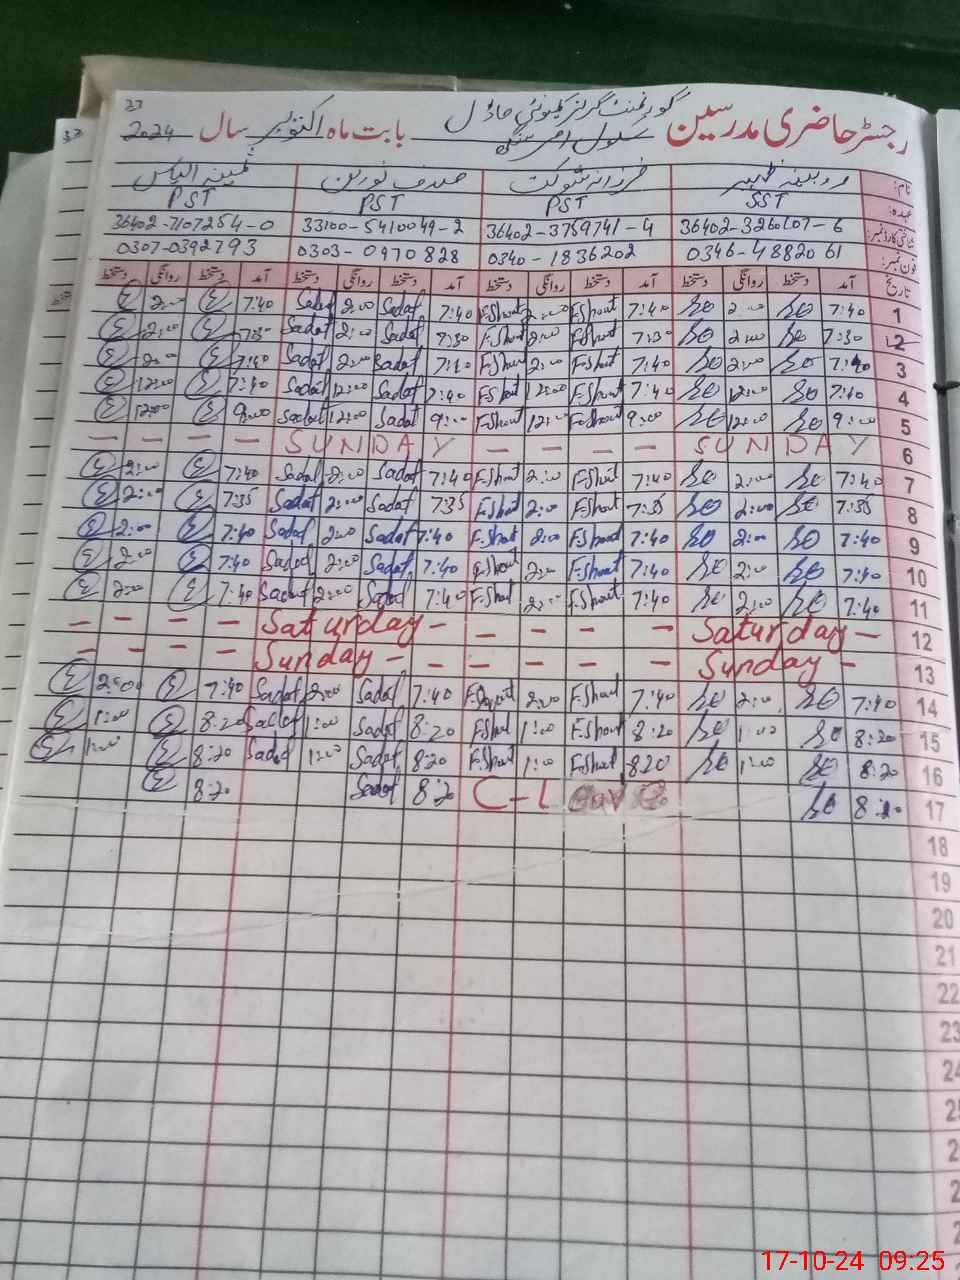 23
رجسٹر حاضری مدرسین گورنمنٹ گرلز کمیونٹی ماڈل سکول بابت ماہ اکتوبر سال 2024
نام: روبینہ ظہیر فرزانہ شوکت صدف نورین ثمینہ الیاس
عہدہ: SST PST PST PST
شناختی کارڈ نمبر: 36402-3260107-6 36402-3759741-4 33100-5410049-2 36402-7107254-0
فون نمبر: 0346-4882061 0340-1836202 0303-0970828 0307-0392793
تاریخ آمد دستخط روانگی دستخط آمد دستخط روانگی دستخط آمد دستخط روانگی دستخط آمد دستخط روانگی دستخط
1 7:40 2:00 7:40 F.Shout 2:00 F.Shout 7:40 Sadaf 2:00 Sadaf 7:40 2:00
2 7:30 2:00 7:30 F.Shout 2:00 F.Shout 7:30 Sadaf 2:00 Sadaf 7:30 2:00
3 7:40 2:00 7:40 F.Shout 2:00 F.Shout 7:40 Sadaf 2:00 Sadaf 7:40 2:00
4 7:40 12:00 7:40 F.Shout 12:00 F.Shout 7:40 Sadaf 12:00 Sadaf 7:40 12:00
5 9:00 12:00 9:00 F.Shout 12:00 F.Shout 9:00 Sadaf 12:00 Sadaf 9:00 12:00
6 SUNDAY - - - - SUNDAY - - - -
7 7:40 2:00 7:40 F.Shout 2:00 F.Shout 7:40 Sadaf 2:00 Sadaf 7:40 2:00
8 7:35 2:00 7:35 F.Shout 2:00 F.Shout 7:35 Sadaf 2:00 Sadaf 7:35 2:00
9 7:40 2:00 7:40 F.Shout 2:00 F.Shout 7:40 Sadaf 2:00 Sadaf 7:40 2:00
10 7:40 2:00 7:40 F.Shout 2:00 F.Shout 7:40 Sadaf 2:00 Sadaf 7:40 2:00
11 7:40 2:00 7:40 F.Shout 2:00 F.Shout 7:40 Sadaf 2:00 Sadaf 7:40 2:00
12 - Saturday - - - - - Saturday - - - -
13 - Sunday - - - - - - Sunday - - - -
14 7:40 2:00 7:40 F.Shout 2:00 F.Shout 7:40 Sadaf 2:00 Sadaf 7:40 2:00
15 8:20 1:00 8:20 F.Shout 1:00 F.Shout 8:20 Sadaf 1:00 Sadaf 8:20 1:00
16 8:20 1:00 820 F.Shout 1:00 F.Shout 8:20 Sadaf 1:00 Sadaf 8:20 1:00
17 8:20 C-Leave 8:20 Sadaf 8:20
18
19
20
21
22
23
24
17-10-24 09:25